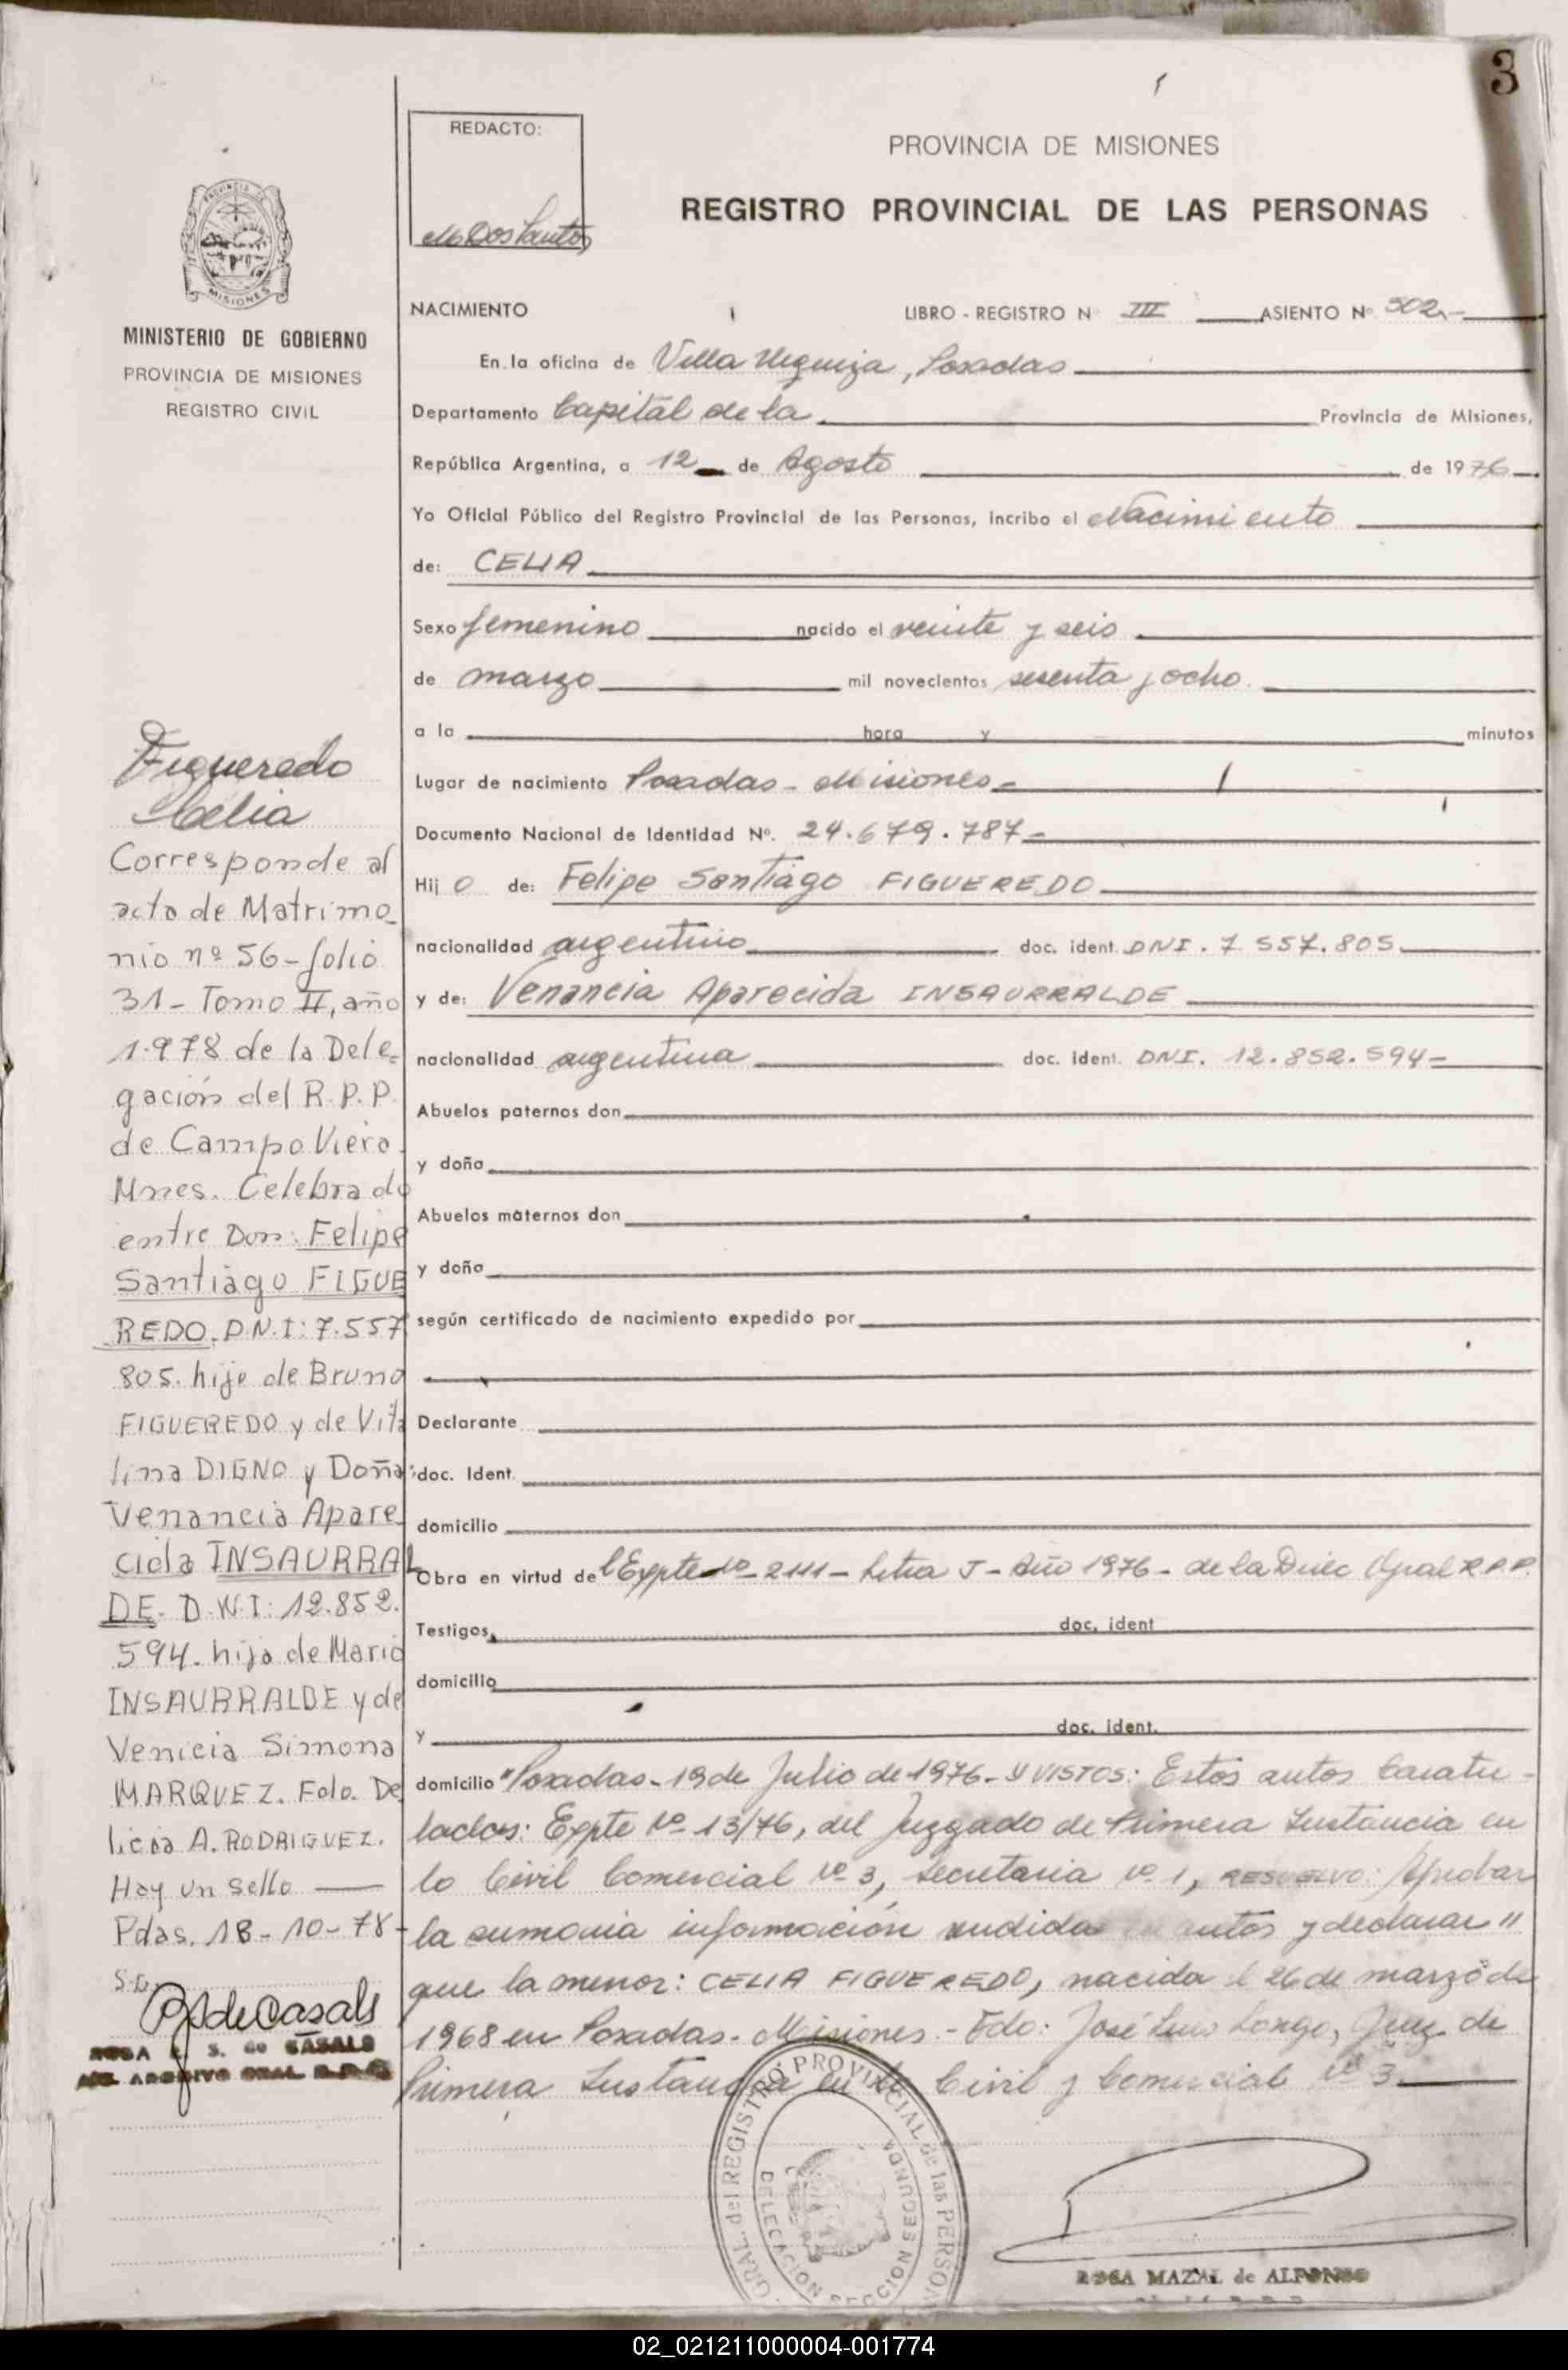 3
REDACTO:
M Dos Santos
PROVINCIA DE MISIONES
REGISTRO PROVINCIAL DE LAS PERSONAS
PROVINCIA DE
MISIONES
MINISTERIO DE GOBIERNO
PROVINCIA DE MISIONES
REGISTRO CIVIL
NACIMIENTO LIBRO - REGISTRO N III ASIENTO Nº 502,-
En la oficina de Villa Urquiza, Posadas
Departamento Capital de la Provincia de Misiones,
República Argentina, a 12 de Agosto de 1976
Yo Oficial Público del Registro Provincial de las Personas, incribo el Nacimiento
de: CELIA
Sexo femenino nacido el veinte y seis
de marzo mil novecientos sesenta y ocho.
a la hora y minutos
Lugar de nacimiento Posadas - Misiones -
Documento Nacional de Identidad Nº. 24.679.787-
Hij o de: Felipe Santiago FIGUEREDO
nacionalidad argentino doc. ident. DNI. 7.557.805
y de: Venancia Aparecida INSAURRALDE
nacionalidad argentina doc. ident. DNI. 12.852.594-
Abuelos paternos don
y doña
Abuelos maternos don
y doña
según certificado de nacimiento expedido por
Declarante
doc. Ident.
domicilio
Obra en virtud del Expte Nº 2111 - Letra J - Año 1976 - de la Direc Gral R.P.P.
Testigos doc. ident
domicilio
y doc. ident.
domicilio "Posadas - 19 de Julio de 1976 - Y VISTOS: Estos autos Caratu-
lados: Expte Nº 13/76, del Juzgado de Primera Instancia en
lo Civil Comercial Nº 3, Secretaria Nº 1, RESUELVO: Aprobar
la sumaria información rendida en autos y declarar "
que la menor: CELIA FIGUEREDO, nacida el 26 de marzo de
1968 en Posadas - Misiones. - Fdo: José Luis Longo, Juez de
Primera Instancia en lo Civil y Comercial Nº 3
Figueredo
Celia
Corresponde al
acta de Matrimo-
nio nº 56 - folio
31 - Tomo II, año
1.978 de la Dele-
gación del R.P.P.
de Campo Viera
Mnes. Celebrado
entre Don: Felipe
Santiago FIGUE
REDO. D.N.I: 7.557
805. hijo de Bruno
FIGUEREDO y de Vita
lina DIGNO y Doña:
Venancia Apare
cida INSAURRAL
DE. D.N.I: 12.852.
594. hija de Mario
INSAURRALDE y de
Venicia Simona
MARQUEZ. Fdo. De
licia A. RODRIGUEZ.
Hay un sello
Pdas. 18-10-78-
S.G.
RSdeCasals
ROSA S. de CASALS
GRAL. del REGISTRO PROVINCIAL de las PERSON
DELEGACION SECCION SEGUNDA
ROSA MAZAL de ALFONSO
02_021211000004-001774